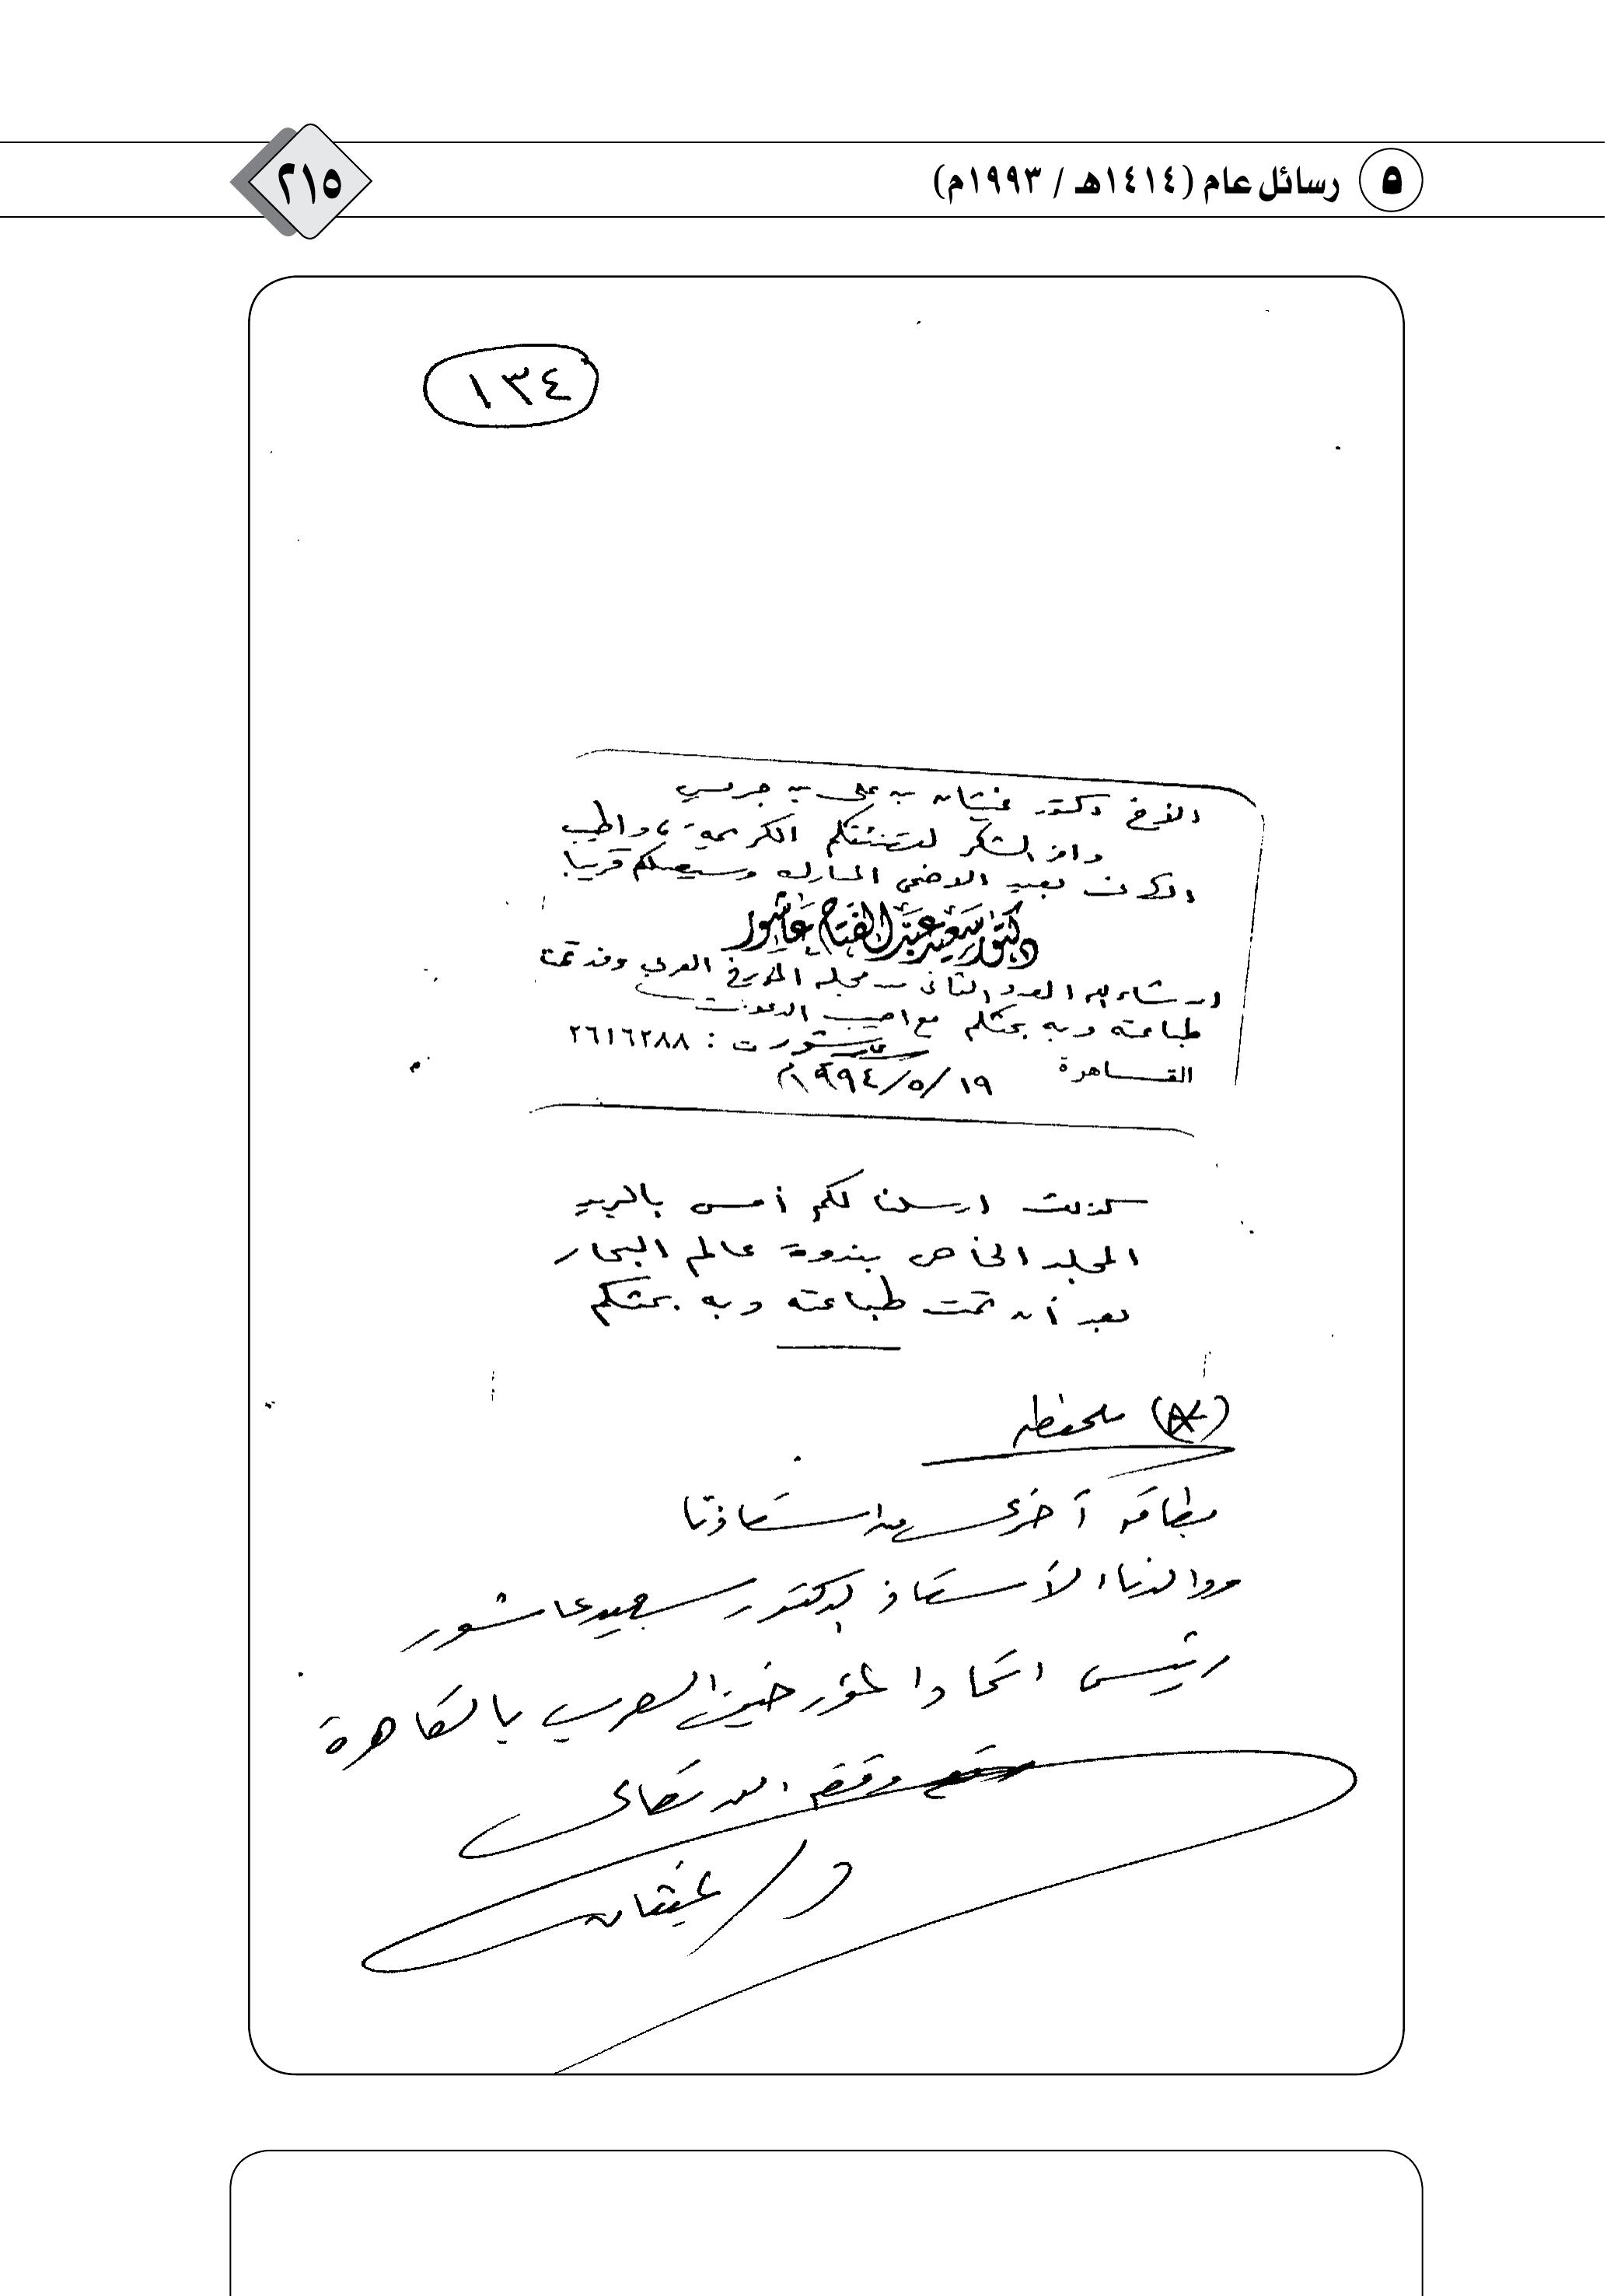 ٥ رسائل عام (١٤١٤هـ / ١٩٩٣م)
٢١٥
١٣٤
الأخ دكتور غيثان بن علي بن جريس
وافر الشكر لتهنئتكم الكريمة، وأطيب
بعيد الاضحى المبارك وسيصلكم قريبا
دكتور سعيد عبد الفتاح عاشور
ان شاء الله العدد الثاني من مجلة المؤرخ العربي وقد تمت
طباعته وبه بحثكم مع أطيب
عاشور ت : ٢٦١٦٢٨٨
القاهرة ١٩/٥/١٩٩٤م
كذلك ارسلنا لكم أمس بالبريد
المجلد الخاص بندوة عالم البحار
بعد أن تمت طباعته وبه بحثكم
(*) ملحوظة
بطاقة أخرى من استاذنا
ووالدنا، الأستاذ الدكتور سعيد عاشور
رئيس اتحاد المؤرخين العرب بالقاهرة
وفقه الله تعالى
د/ غيثان